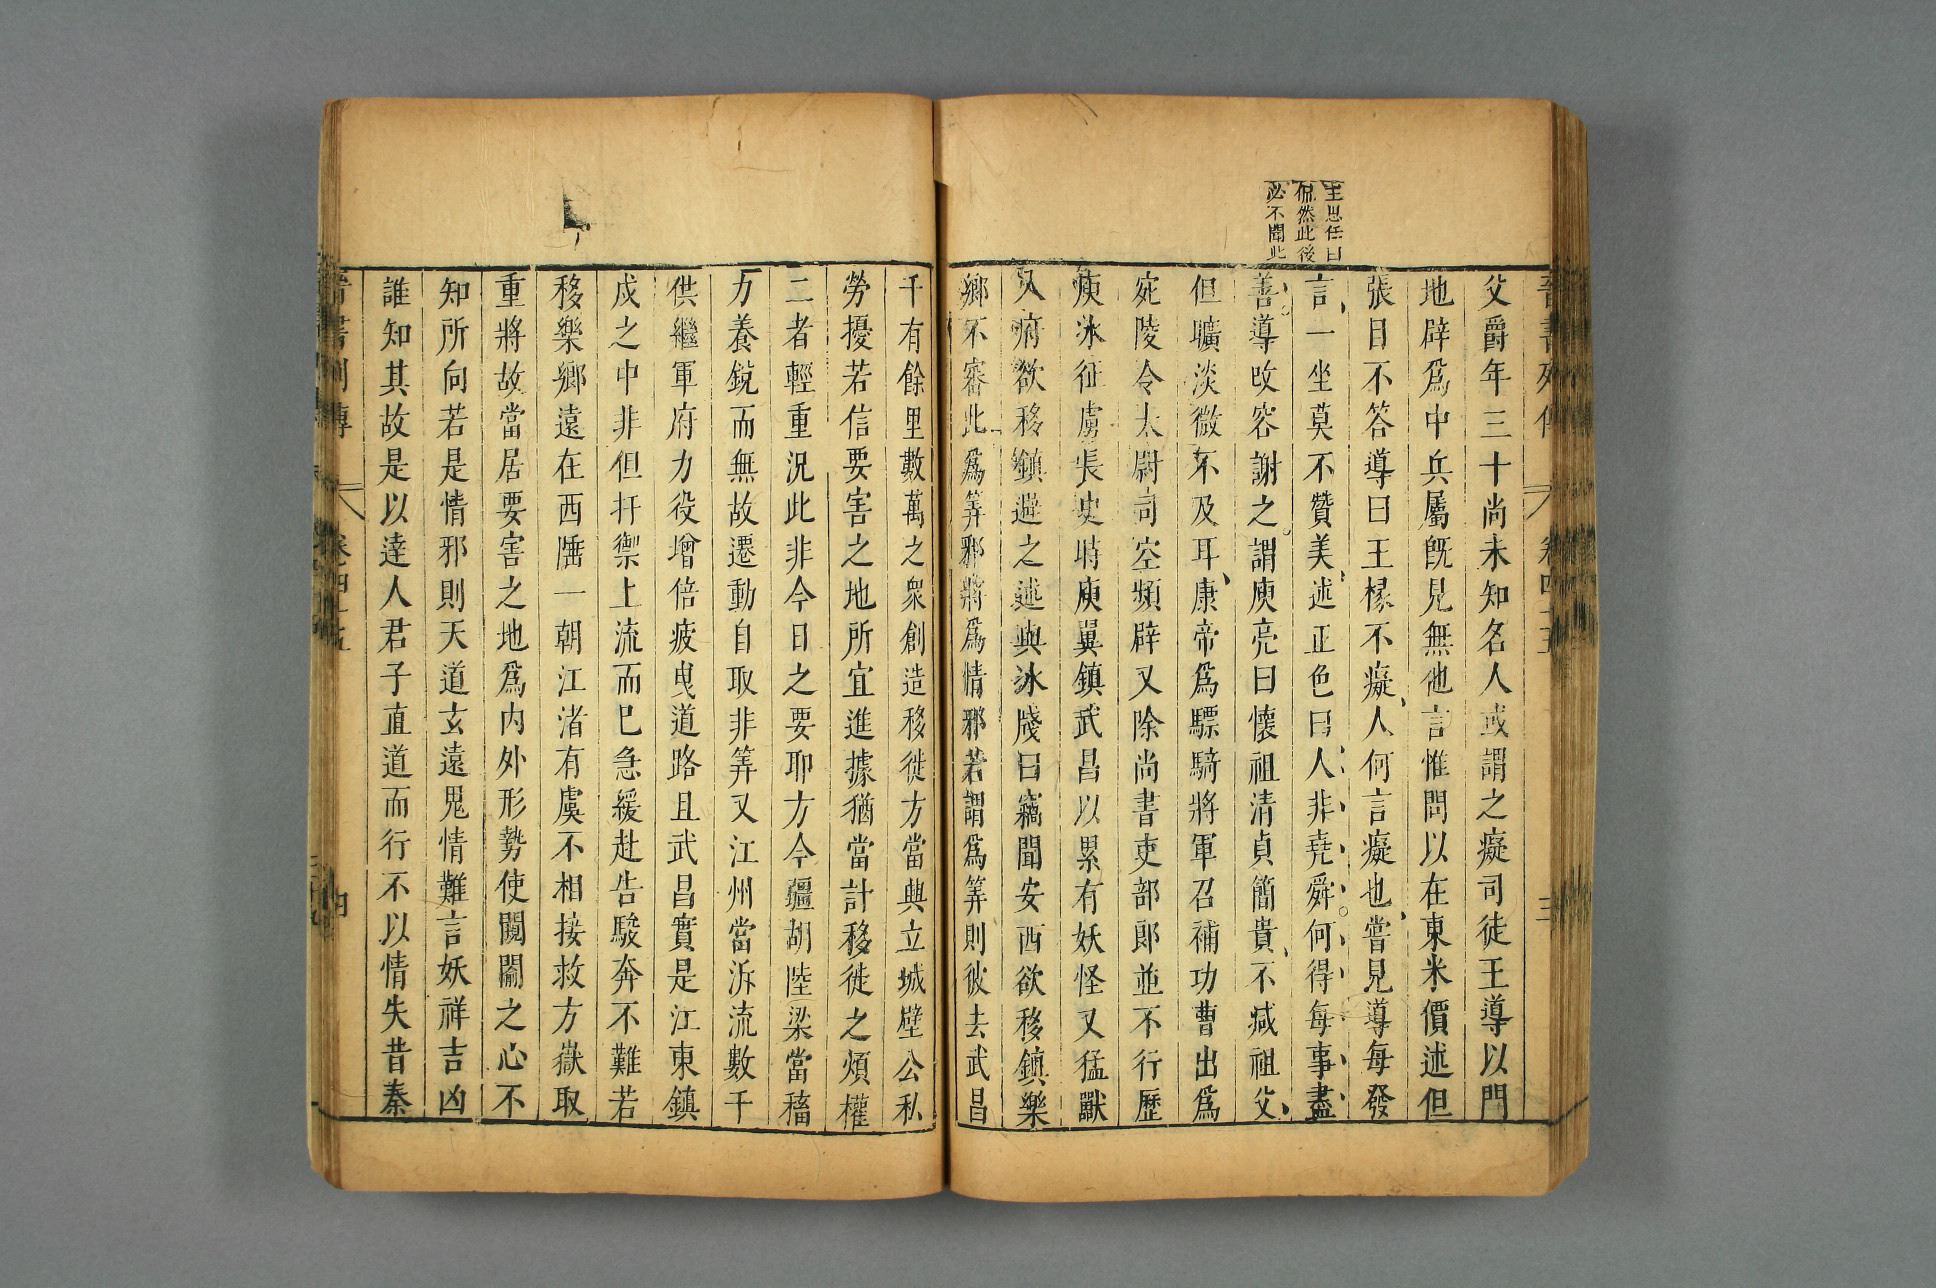 王思任曰
侃然此後
必不聞此
晉書列傳 卷四十五 三
父爵年三十尚未知名人或謂之癡司徒王導以門
地辟爲中兵屬旣見無他言惟問以在東米價述但
張目不答導曰王掾不癡人何言癡也嘗見導每發
言一坐莫不贊美述正色曰人非堯舜何得每事盡
善導改容謝之謂庾亮曰懷祖清貞簡貴不减祖父
但曠淡微不及耳康帝爲驃騎將軍召補功曹出爲
宛陵令太尉司空頻辟又除尚書吏部郎並不行歷
庾冰征虜長史時庾翼鎮武昌以累有妖怪又猛獸
入府欲移鎮避之述與冰牋曰竊聞安西欲移鎮樂
鄉不審此爲筭邪將爲情邪若謂爲筭則彼去武昌
千有餘里數萬之衆創造移徙方當興立城壁公私
勞擾若信要害之地所宜進據猶當計移徙之煩權
二者輕重況此非今日之要耶方今彊胡陸梁當稸
力養銳而無故遷動自取非筭又江州當泝流數千
供繼軍府力役增倍疲曳道路且武昌實是江東鎮
戍之中非但扞禦上流而已急緩赴告駿奔不難若
移樂鄉遠在西陲一朝江渚有虞不相接救方嶽取
重將故當居要害之地爲内外形勢使闚𨵦之心不
知所向若是情邪則天道玄遠鬼情難言妖祥吉凶
誰知其故是以達人君子直道而行不以情失昔秦
晉書列傳 卷四十五 四